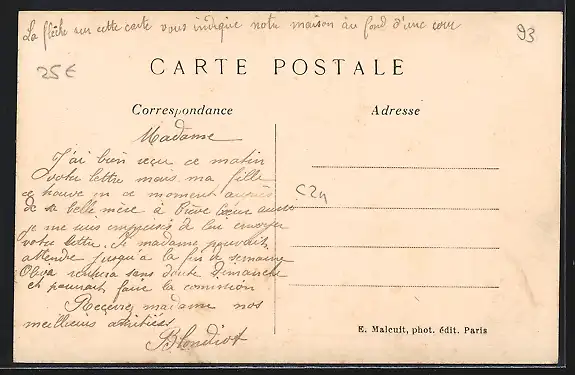 La flèche sur cette carte vous indique notre maison au fond d'une cour
93
25€
CARTE POSTALE
Correspondance
Adresse
Madame
J'ai bien reçu ce matin
votre lettre mais ma fille
se trouve en ce moment auprès
C24
de sa belle mère à
je me suis empressée de lui envoyer
votre lettre. Si madame pouvait
attendre jusqu'à la fin de semaine
viendra sans doute Dimanche
et pourrait faire la commission
Recevez madame nos
meilleurs amitiés
Blondiot
E. Malcuit, phot. édit. Paris